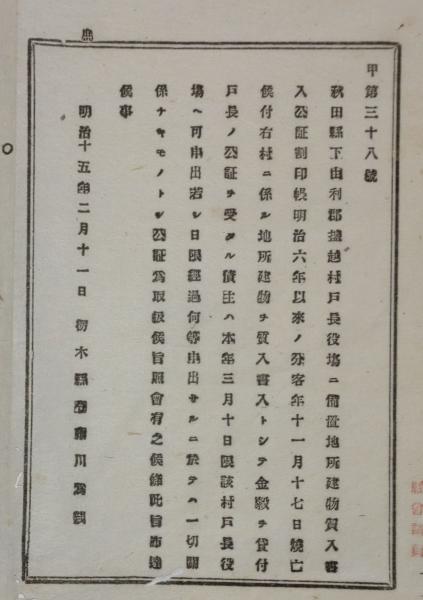 甲第三十八號
秋田縣下由利郡鹽越村戸長役塲ニ備置地所建物質入書
入公証割印帳明治六年以來ノ分客年十一月十七日燒亡
候付右村ニ係ル地所建物ヲ質入書入トシテ金穀ヲ貸付
戸長ノ公証ヲ受タル債主ハ本年三月十日限該村戸長役
塲ヘ可申出若シ日限經過何等申出サルニ於テハ一切關
係ナキモノトシ公証爲取扱候旨照會有之候條此旨布達
候事
明治十五年二月十一日 栃木縣令藤川爲親